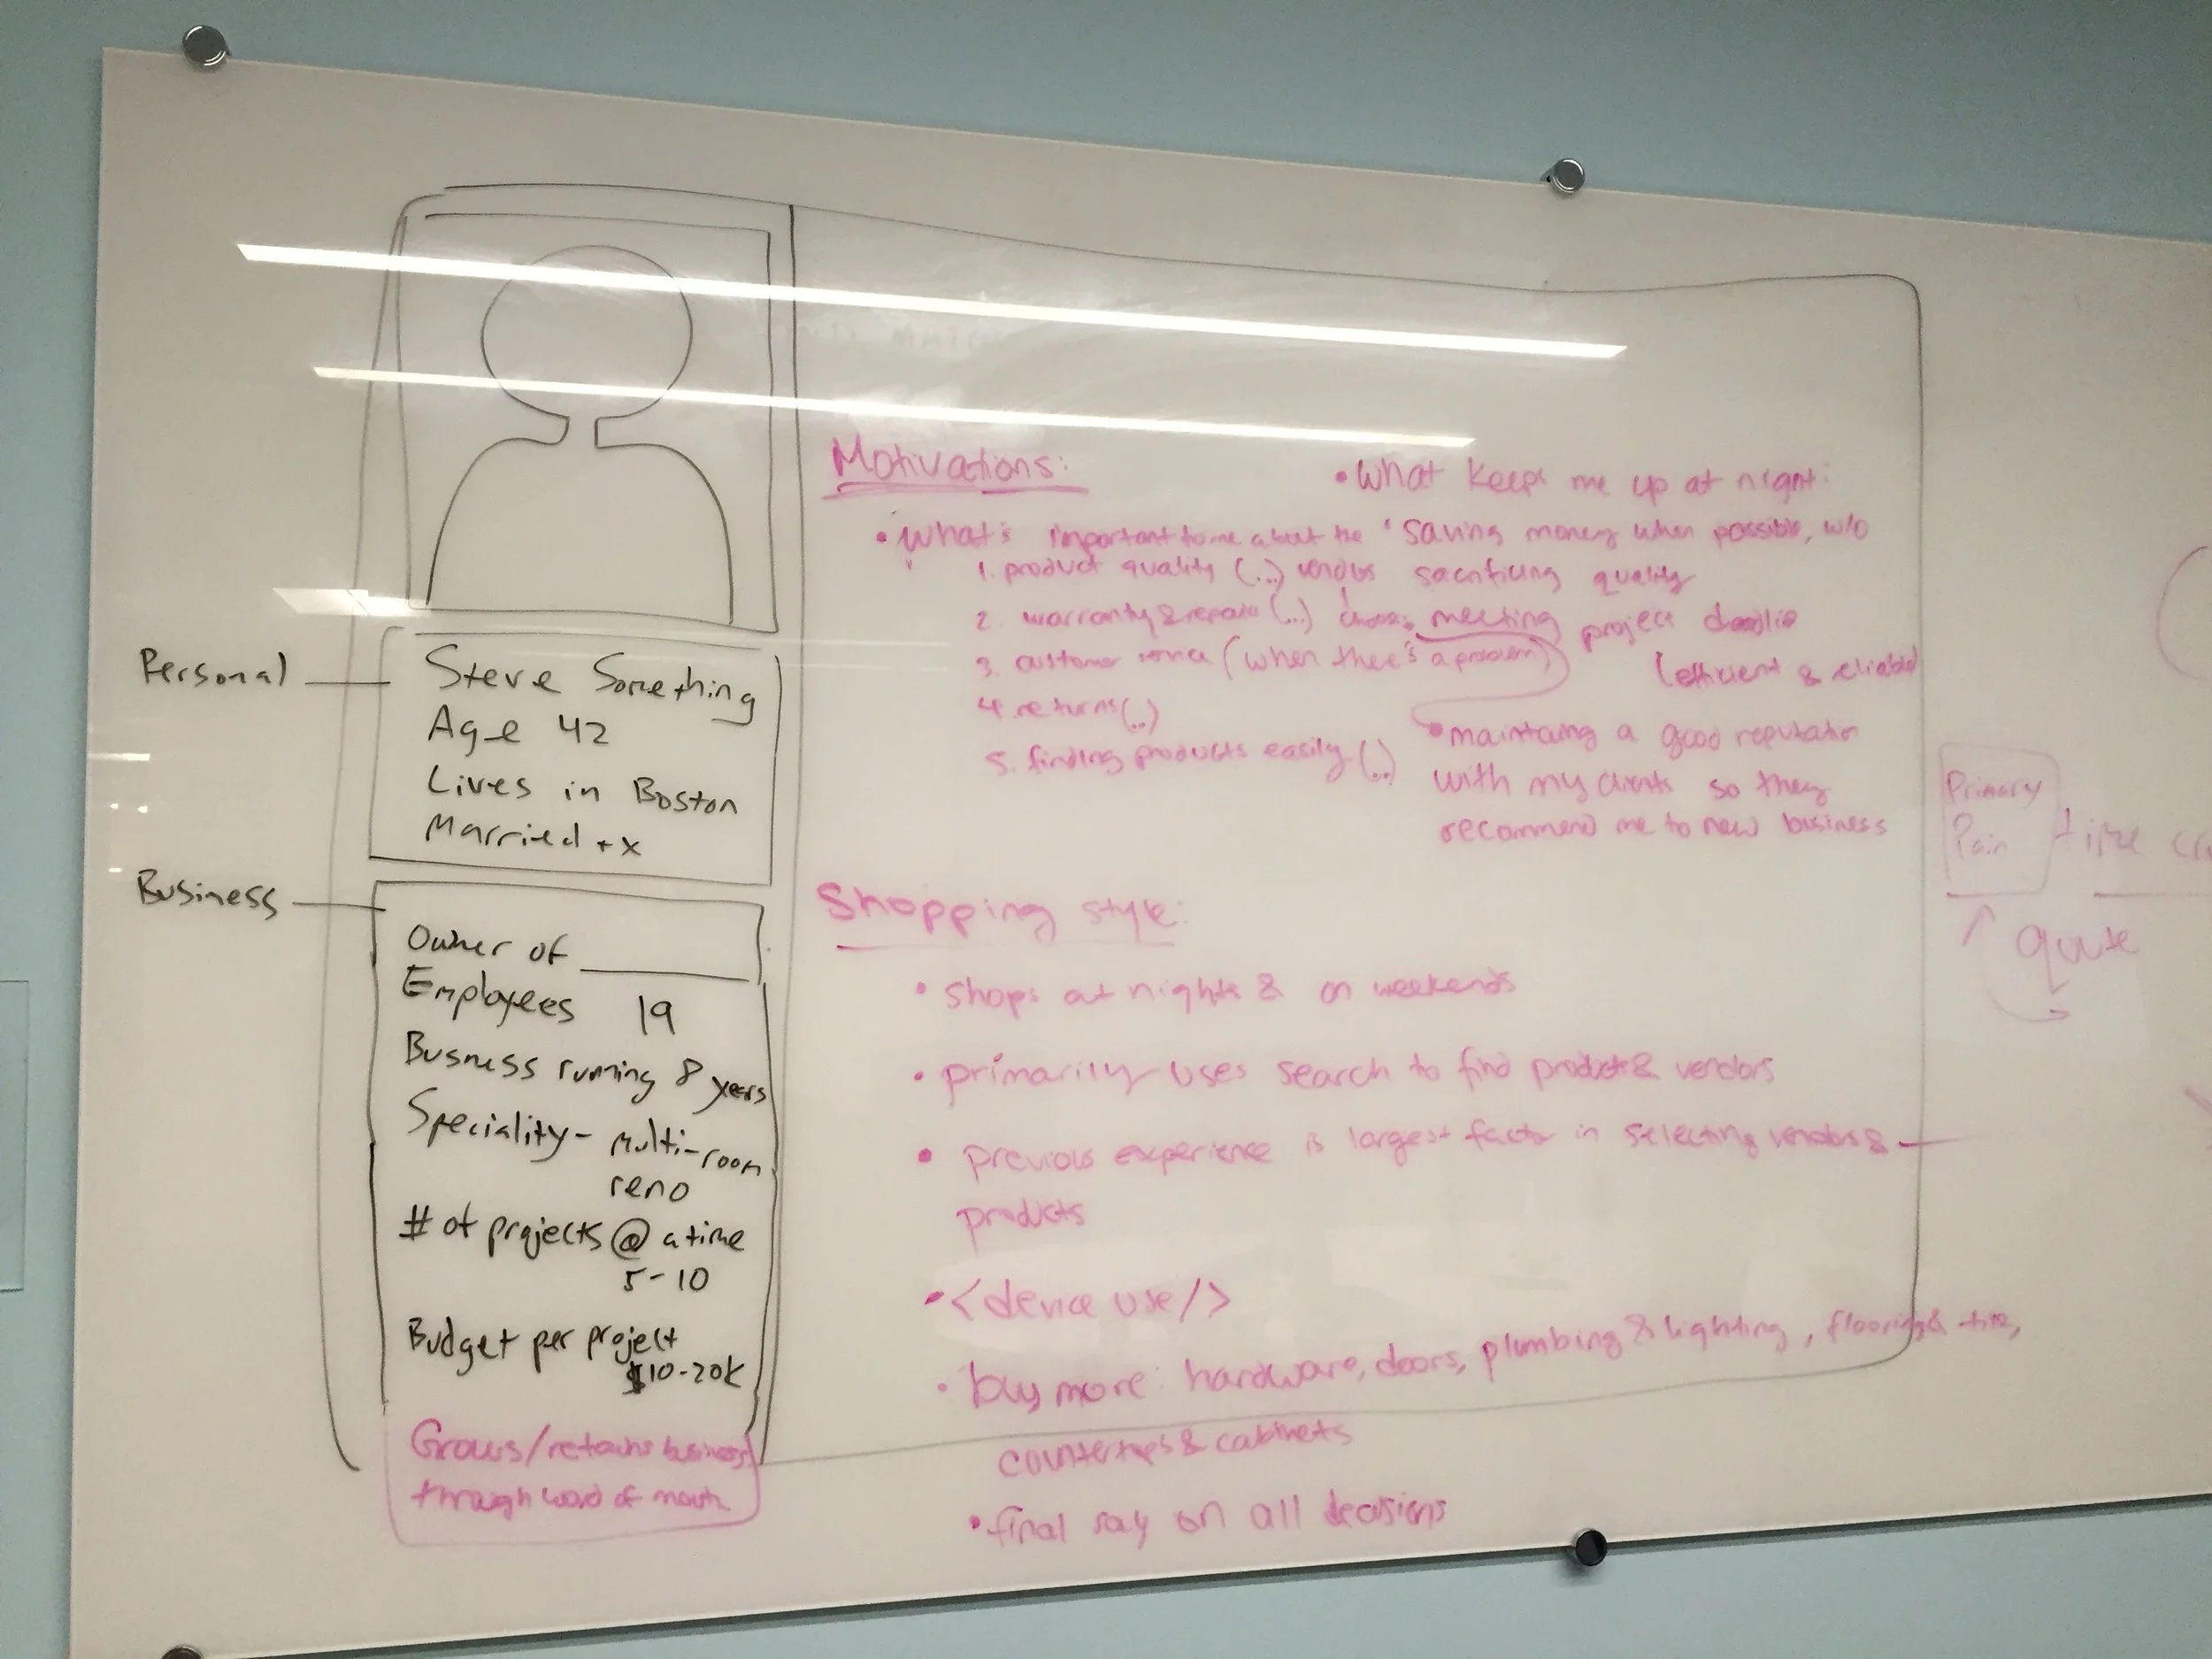 Personal
Steve Something
Age 42
Lives in Boston
Married + x
Business
Owner of
Employees 19
Business running 8 years
Speciality - Multi-room
reno
# of projects @ a time
5-10
Budget per project
$10-20K
Grows/retains business
through word of mouth
Motivations:
• What's important to me about the
vendors
I choose
1. product quality (...)
2. warranty & repair (...)
3. customer service (when there's a problem)
4. returns (..)
5. finding products easily (..)
• What keeps me up at night:
• Saving money when possible, w/o
sacrificing quality
meeting project
(efficient & reliable)
• maintaing a good reputation
with my clients so they
recommend me to new business
Shopping style:
• shops at nights & on weekends
• primarily uses search to find products & vendors
• previous experience is largest factor in selecting vendors &
products
• <device use/>
• buy more: hardware, doors, plumbing & lighting, flooring & tile,
countertops & cabinets
• final say on all decisions
Primary
Pain
time
quote